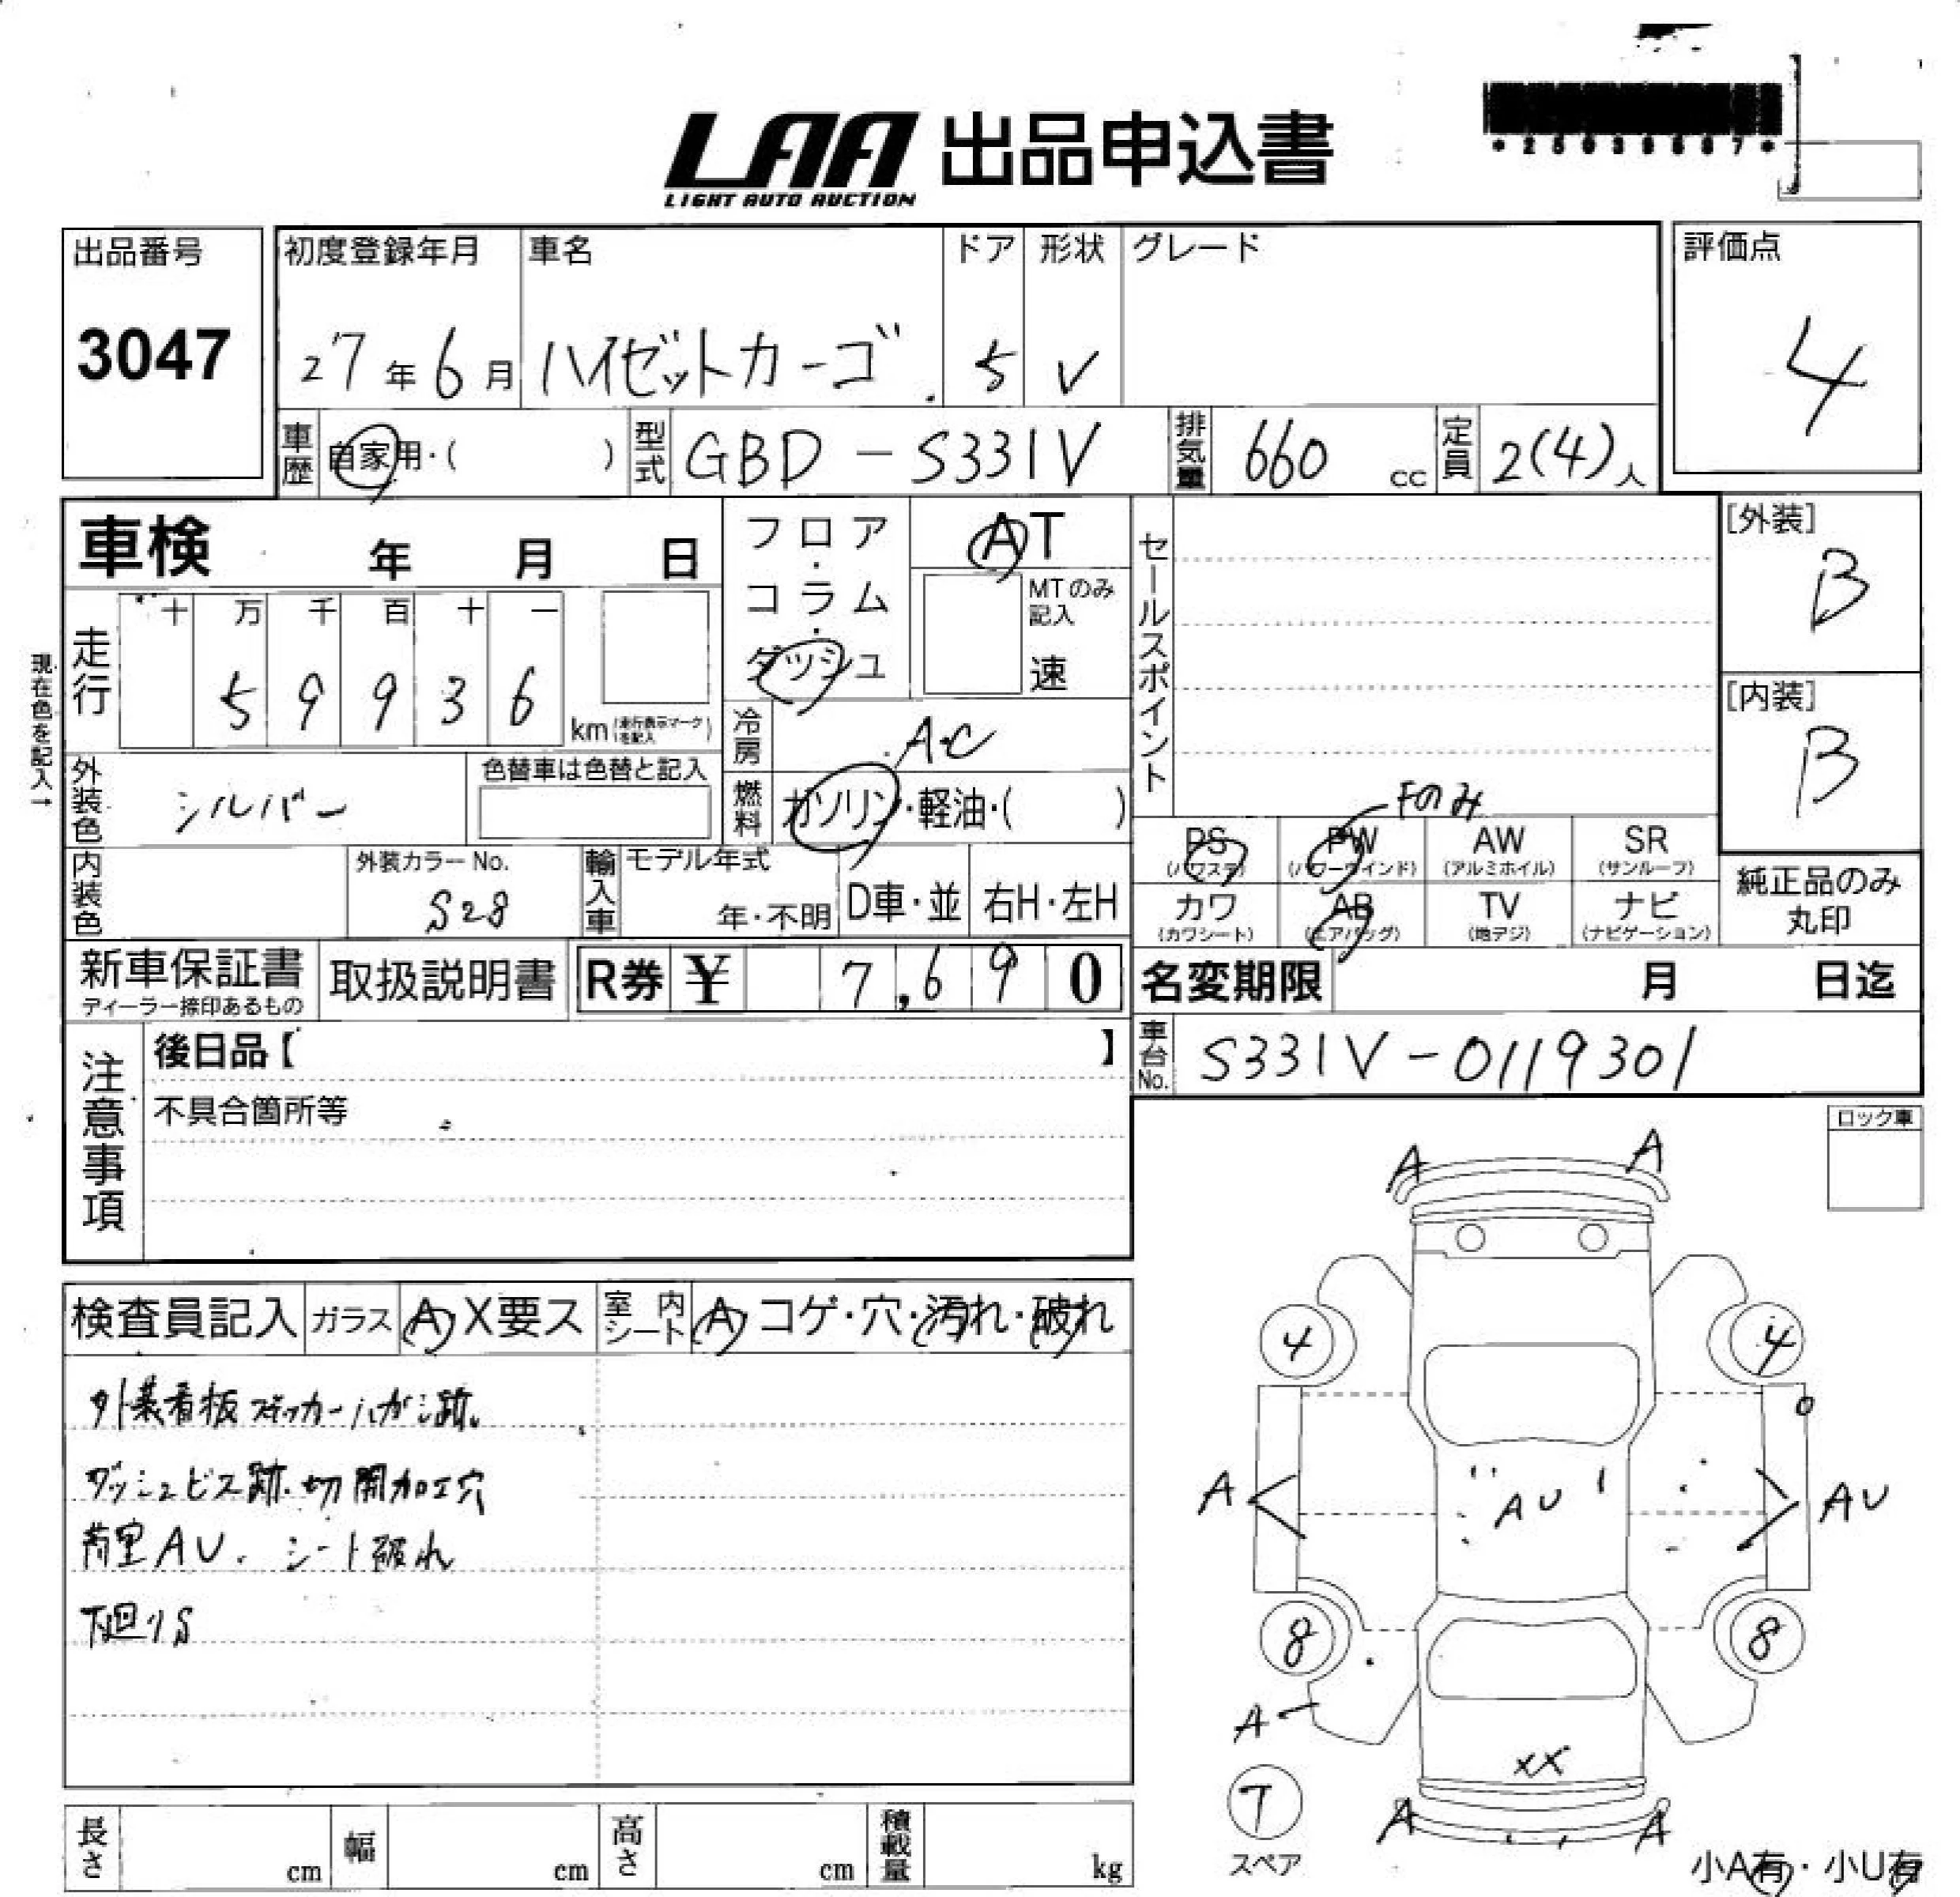 LAA 出品申込書
LIGHT AUTO AUCTION
出品番号 初度登録年月 車名 ドア 形状 グレード 評価点
3047 27年6月 ハイゼットカーゴ 5 V 4
車歴 自家用・( ) 型式 GBD-S331V 排気量 660 cc 定員 2(4)人
車検 年 月 日 フロア・コラム・ダッシュ AT
MTのみ記入 速
セールスポイント
[外装] B
現在色を記入→
走行 十 万 千 百 十 一
5 9 9 3 6 km (走行表示マークを記入)
[内装] B
冷房 A・C
外装色 シルバー 色替車は色替と記入 燃料 ガソリン・軽油・( )
Fのみ
PS PW AW SR
(パワステ) (パワーウインド) (アルミホイル) (サンルーフ)
内装色 外装カラーNo. S28 輸入車 モデル年式 年・不明 D車・並 右H・左H
カワ AB TV ナビ
(カワシート) (エアバッグ) (地デジ) (ナビゲーション)
純正品のみ
丸印
新車保証書 取扱説明書 R券 ¥ 7,690 名変期限 月 日迄
ディーラー捺印あるもの
注意事項 後日品【 】 車台No. S331V-0119301
不具合箇所等
ロック車
検査員記入 ガラス A X要ス 室内シート A・コゲ・穴・汚れ・破れ
外装看板ステッカーハガシ跡
ダッシュビス跡・切開加工穴
荷室AU. シート破れ
下廻りS
A A
4 4
A AU AU
8 8
A
XX
7 A A
スペア
長さ cm 幅 cm 高さ cm 積載量 kg
小A有・小U有